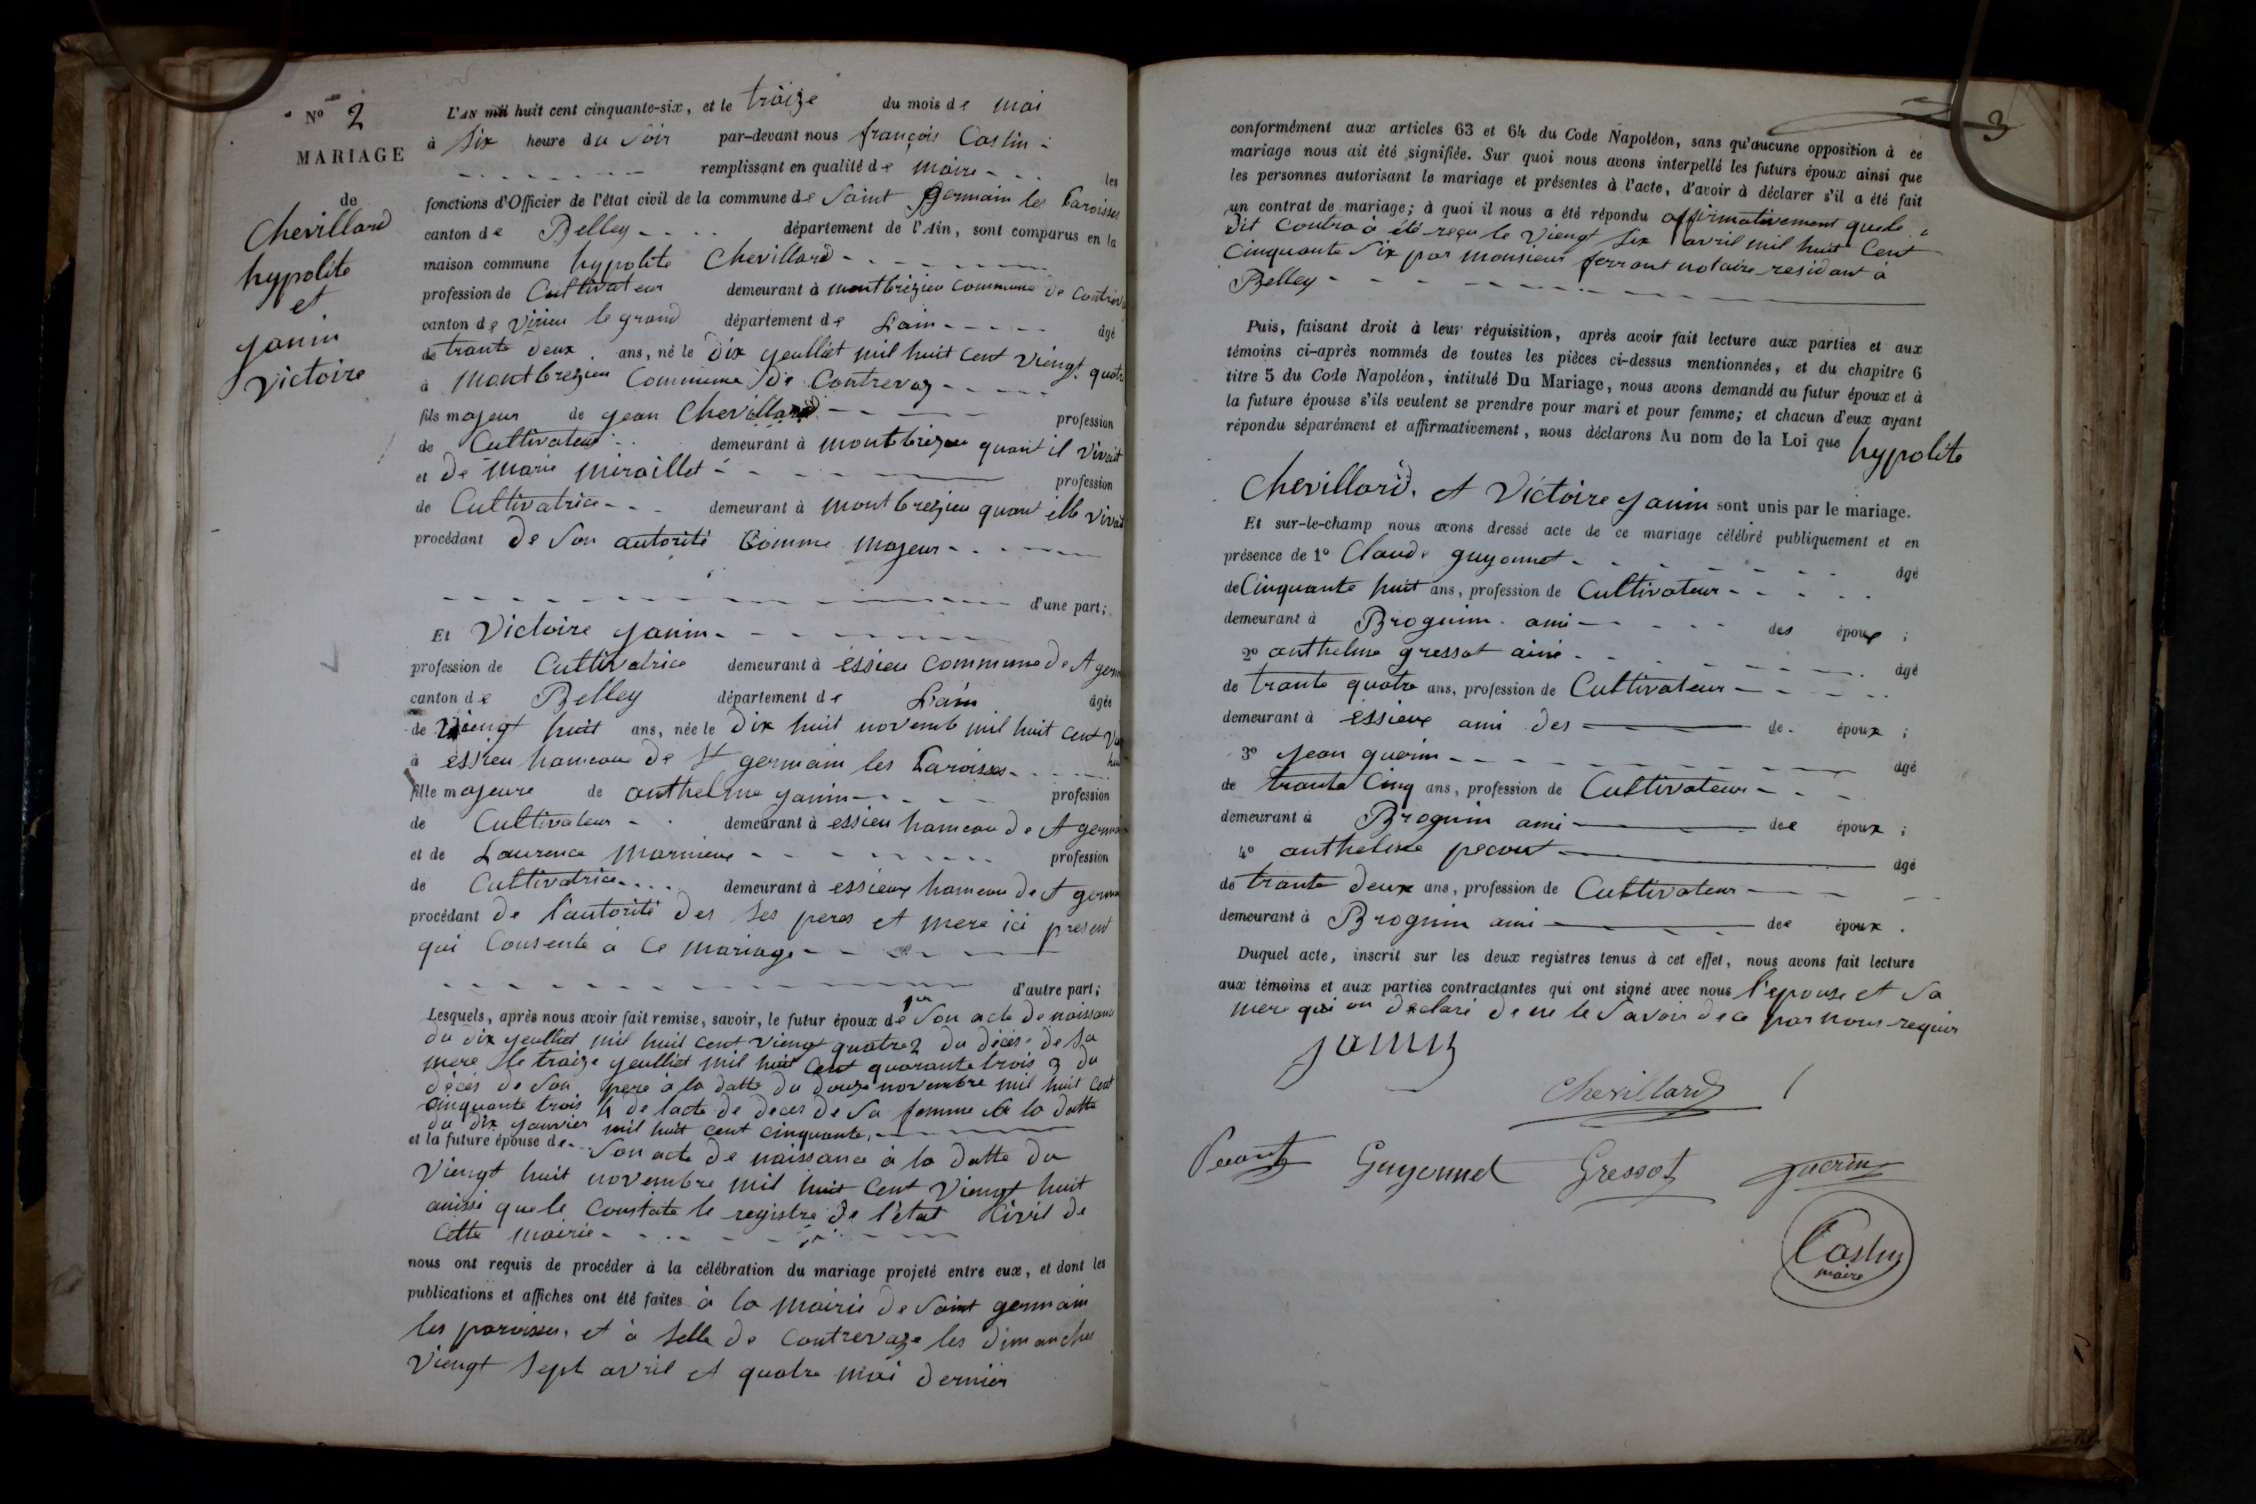 N° 2
MARIAGE
de
Chevillard
hypolite
et
janin
victoire
L'AN mil huit cent cinquante-six, et le traize du mois de mai
à six heure du soir par-devant nous françois Castin
remplissant en qualité de maire les
fonctions d'Officier de l'état civil de la commune de Saint germain les Paroisses
canton de Belley département de l'Ain, sont comparus en la
maison commune hypolite Chevillard
profession de Cultivateur demeurant à montbrézieu commune de Contrev
canton de virieu le grand département de Lain âgé
de trante deux ans, né le dix jeulliet mil huit cent viengt quatre
à montbrezieu Commune de Contrevoz
fils majeur de jean Chevillard profession
de Cultivateur demeurant à montbrezieu quant il vivait
et de marie miraillet profession
de Cultivatrice demeurant à montbrezieu quant elle vivait
procédant de son autorité Comme majeur
d'une part;
Et Victoire janin
profession de Cultivatrice demeurant à éssieu commune de St germ
canton de Belley département de Lain âgée
de viengt huit ans, née le dix huit novemb mil huit cent v
à essieu hameau de St germain les Paroisses hui
fille majeure de anthelme janin profession
de Cultivateur demeurant à essieu hameau de St germ
et de Laurence marnieux profession
de Cultivatrice demeurant à essieux hameau de St germ
procédant de l'autorité des ses peres et mere ici present
qui Consente à ce mariage
d'autre part;
Lesquels, après nous avoir fait remise, savoir, le futur époux de 1er son acte de naissance
du dix jeulliet mil huit cent viengt quatre 2 du décés de sa
mere le traize jeulliet mil huit cent quarante trois 3 du
décés de son pere à la datte du douze novembre mil huit cent
cinquante trois 4 de lacte de deces de sa femme à la datte
du dix janvier mil huit cent cinquante.
et la future épouse de son acte de naissance à la datte du
viengt huit novembre mil huit cent viengt huit
ainssi que le Constate le registre de l'état Civil de
cette mairie
nous ont requis de procéder à la célébration du mariage projeté entre eux, et dont les
publications et affiches ont été faites à la mairie de saint germain
les paroisses, et à selle de contrevaze les dimanches
viengt sept avril et quatre mai dernier
3
conformément aux articles 63 et 64 du Code Napoléon, sans qu'aucune opposition à ce
mariage nous ait été signifiée. Sur quoi nous avons interpellé les futurs époux ainsi que
les personnes autorisant le mariage et présentes à l'acte, d'avoir à déclarer s'il a été fait
un contrat de mariage; à quoi il nous a été répondu affirmativement quele
dit contra a été reçu le viengt six avril mil huit cent
cinquante six par monsieur ferrant notaire residant à
Belley
Puis, faisant droit à leur réquisition, après avoir fait lecture aux parties et aux
témoins ci-après nommés de toutes les pièces ci-dessus mentionnées, et du chapitre 6
titre 5 du Code Napoléon, intitulé Du Mariage, nous avons demandé au futur époux et à
la future épouse s'ils veulent se prendre pour mari et pour femme; et chacun d'eux ayant
répondu séparément et affirmativement, nous déclarons Au nom de la Loi que hypolite
Chevillard. et Victoire janin sont unis par le mariage.
Et sur-le-champ nous avons dressé acte de ce mariage célébré publiquement et en
présence de 1° Claude guyonnet âgé
de Cinquante huit ans, profession de Cultivateur
demeurant à Brognin ami des époux ;
2° anthelme gressot ainé âgé
de trante quatre ans, profession de Cultivateur
demeurant à éssieux ami des de époux ;
3° jean guerin âgé
de trante Cinq ans, profession de Cultivateur
demeurant à Brognin ami des époux ;
4° anthelme pecout âgé
de trante deux ans, profession de Cultivateur
demeurant à Brognin ami des époux .
Duquel acte, inscrit sur les deux registres tenus à cet effet, nous avons fait lecture
aux témoins et aux parties contractantes qui ont signé avec nous l'epouse et sa
mere qui on déclaré de ne le savoir de ce par nous requis
janin
Chevillard
Pecout Guyonnet Gressot guerin
Castin
maire